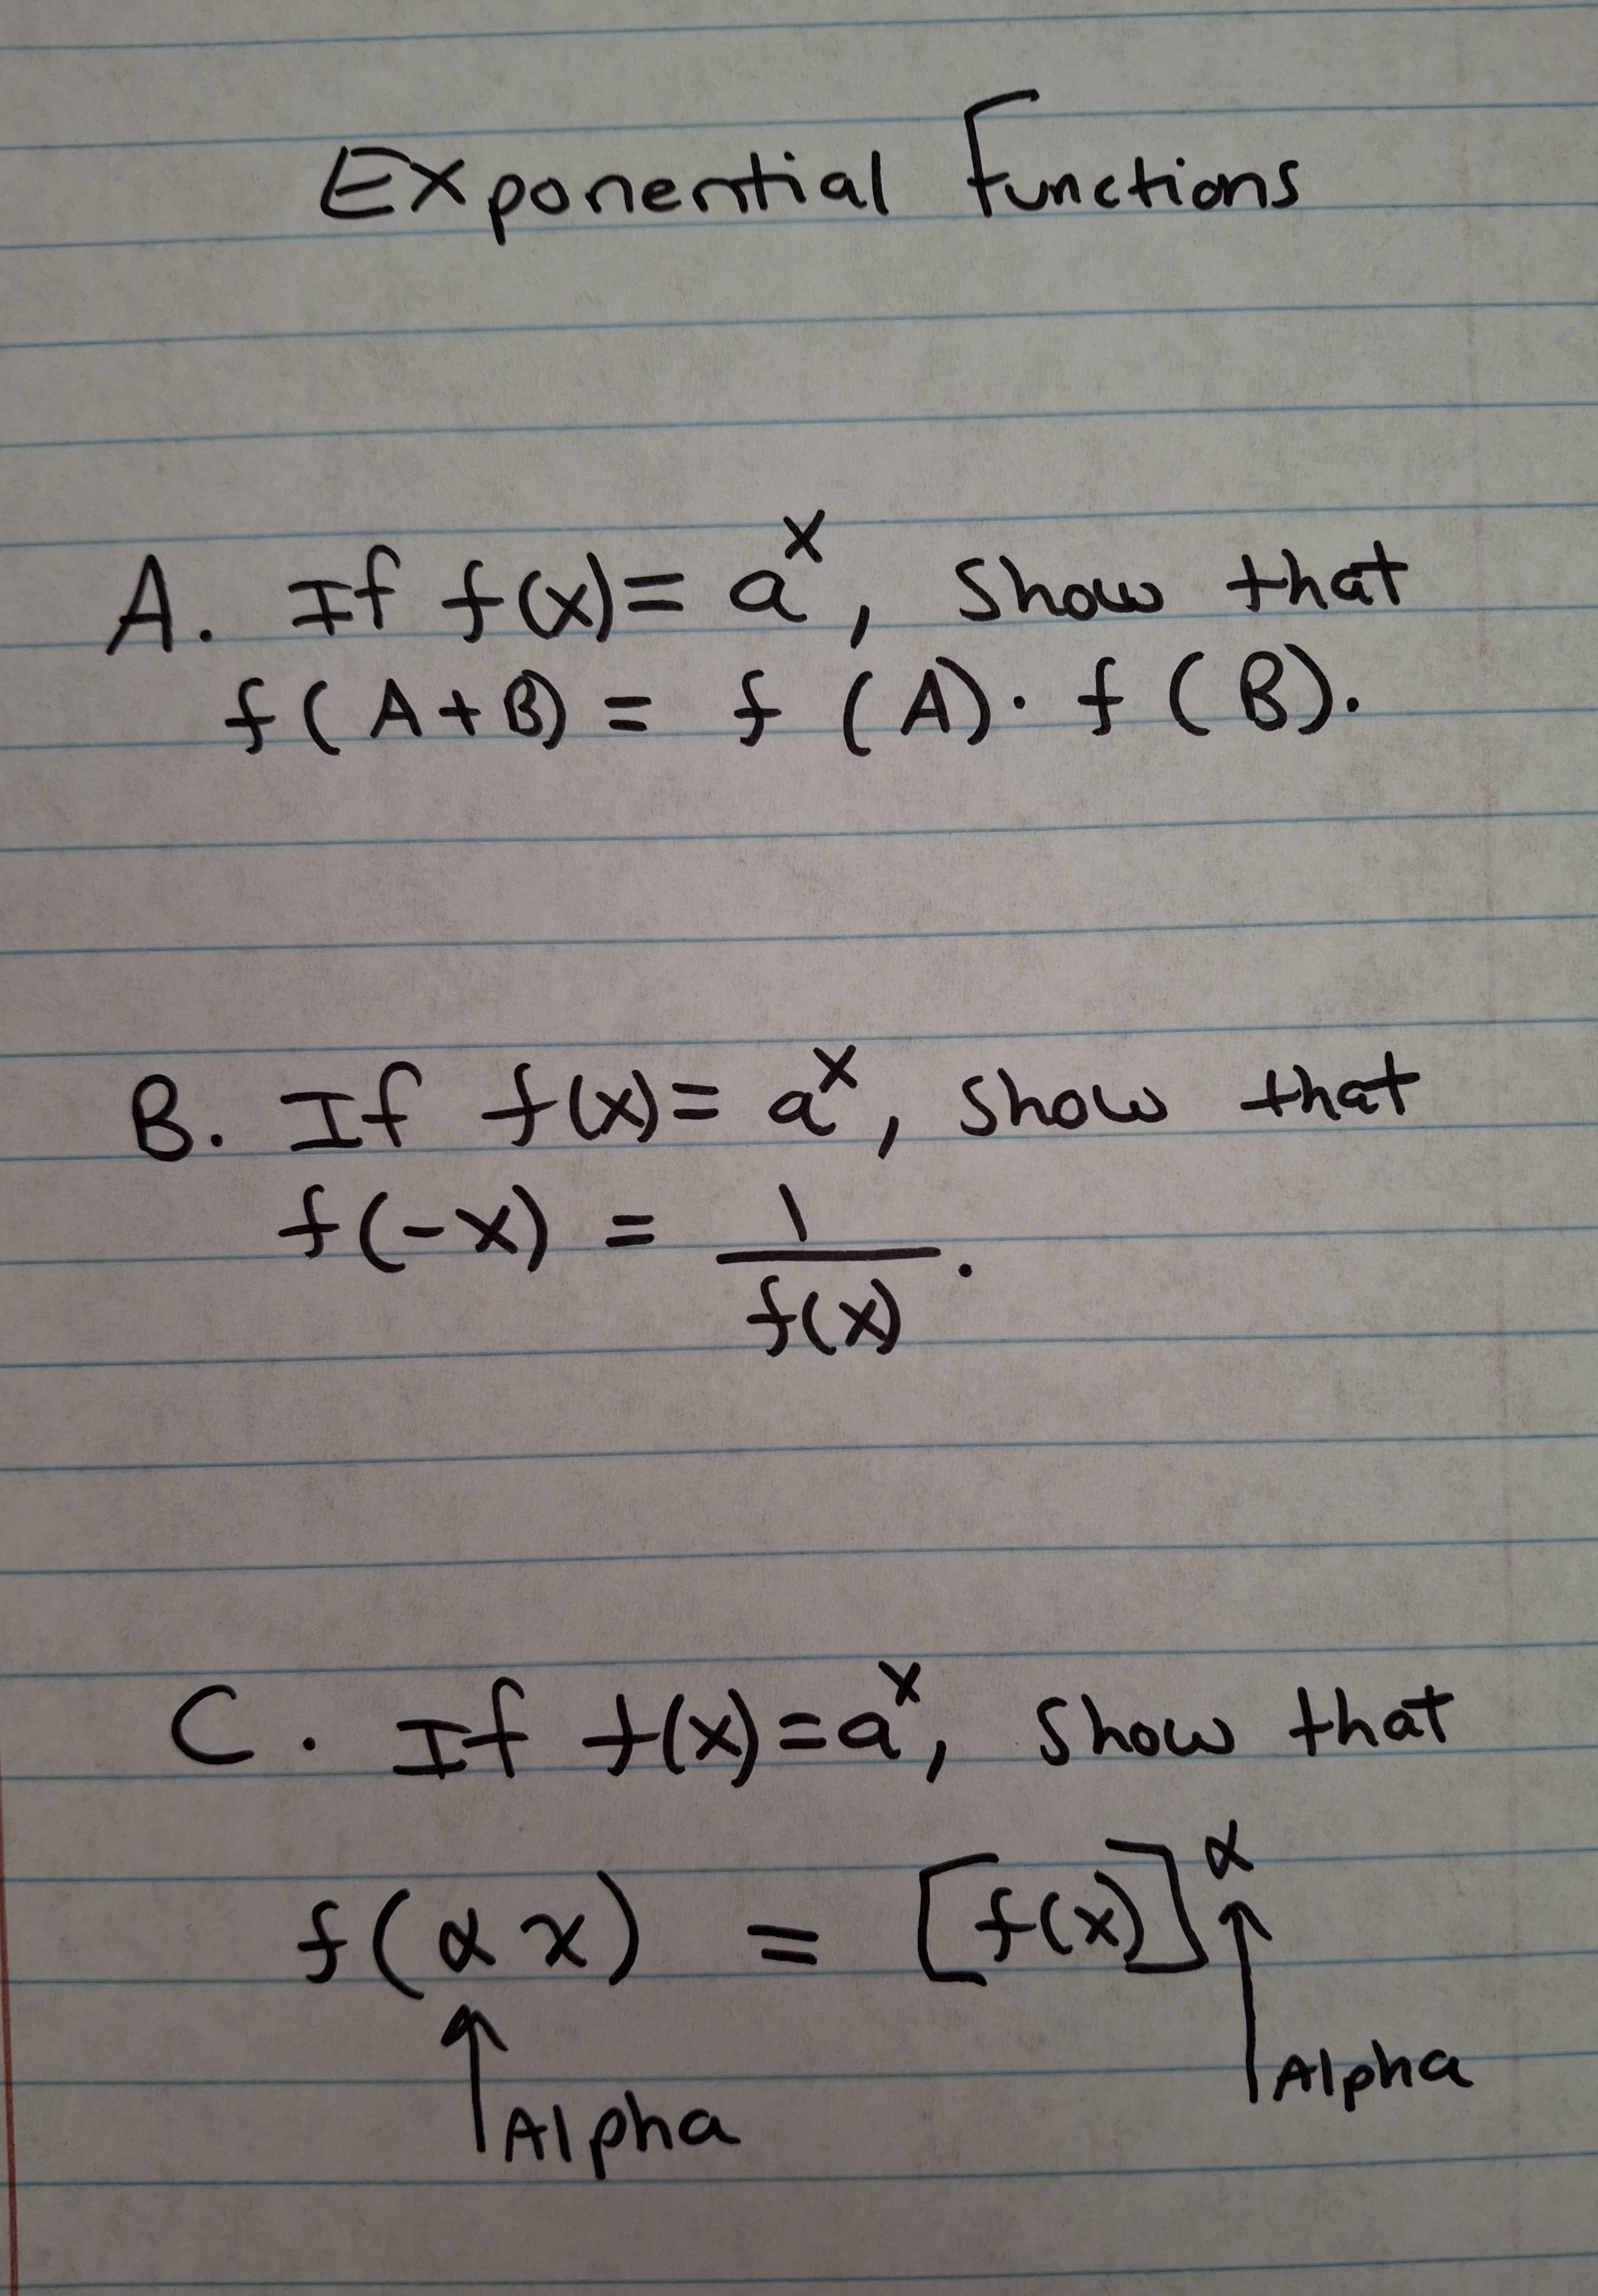 Exponential Functions
A. If f(x) = a^x, show that
f(A+B) = f (A) · f (B).
B. If f(x) = a^x, show that
f(-x) = 1/f(x).
C. If f(x) = a^x, show that
f(αx) = [f(x)]^α
↑Alpha ↑Alpha